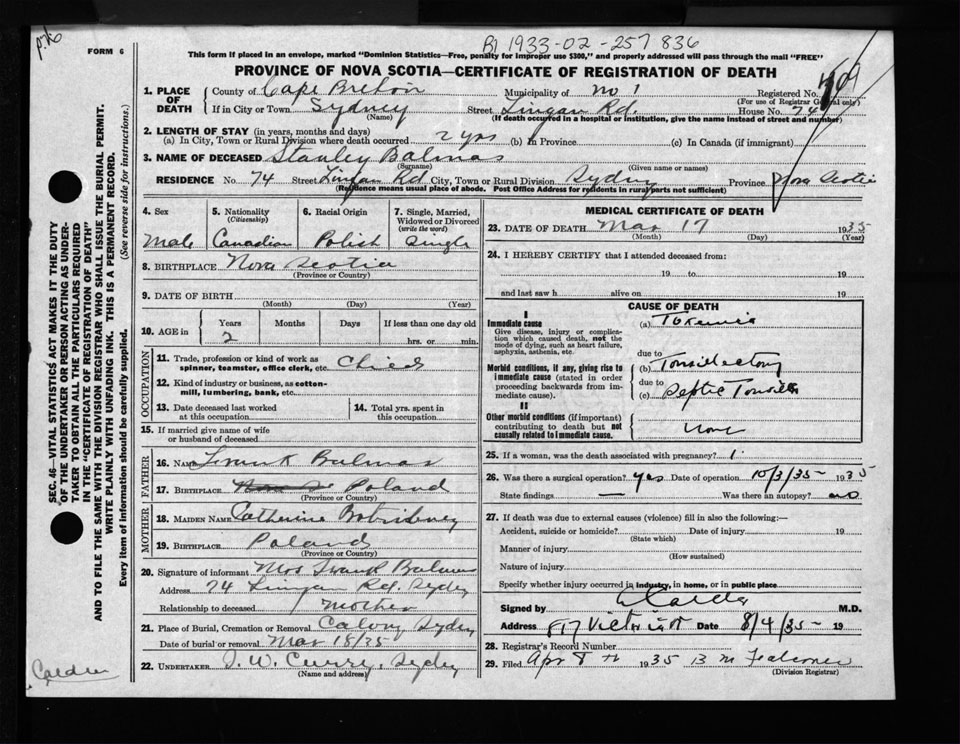 B1 1933-02-257836
FORM 6
This form if placed in an envelope, marked "Dominion Statistics—Free, penalty for improper use $300," and properly addressed will pass through the mail "FREE"
PROVINCE OF NOVA SCOTIA—CERTIFICATE OF REGISTRATION OF DEATH
SEC. 46—VITAL STATISTICS ACT MAKES IT THE DUTY
OF THE UNDERTAKER OR PERSON ACTING AS UNDER-
TAKER TO OBTAIN ALL THE PARTICULARS REQUIRED
IN THE "CERTIFICATE OF REGISTRATION OF DEATH"
AND TO FILE THE SAME WITH THE DIVISION REGISTRAR WHO SHALL ISSUE THE BURIAL PERMIT.
WRITE PLAINLY WITH UNFADING INK. THIS IS A PERMANENT RECORD.
Every item of information should be carefully supplied. (See reverse side for instructions.)
1. PLACE OF DEATH County of Cape Breton Municipality of No 1 Registered No.
(For use of Registrar General only)
If in City or Town Sydney Street Lingan Rd. House No. 74
(Name) (If death occurred in a hospital or institution, give the name instead of street and number)
2. LENGTH OF STAY (in years, months and days)
(a) In City, Town or Rural Division where death occurred 2 yrs (b) In Province (c) In Canada (if immigrant)
3. NAME OF DECEASED Stanley Balmas
(Surname) (Given name or names)
RESIDENCE No. 74 Street Lingan Rd City, Town or Rural Division Sydney Province Nova Scotia
(Residence means usual place of abode. Post Office Address for residents in rural parts not sufficient)
4. Sex Male
5. Nationality (Citizenship) Canadian
6. Racial Origin Polish
7. Single, Married, Widowed or Divorced (write the word) Single
8. BIRTHPLACE Nova Scotia
(Province or Country)
9. DATE OF BIRTH
(Month) (Day) (Year)
10. AGE in Years Months Days If less than one day old
2 hrs. or min.
OCCUPATION
11. Trade, profession or kind of work as spinner, teamster, office clerk, etc. Child
12. Kind of industry or business, as cotton-mill, lumbering, bank, etc.
13. Date deceased last worked at this occupation
14. Total yrs. spent in this occupation
15. If married give name of wife or husband of deceased
FATHER
16. NAME Frank Balmas
17. BIRTHPLACE Poland
(Province or Country)
MOTHER
18. MAIDEN NAME Catherine
19. BIRTHPLACE Poland
(Province or Country)
20. Signature of informant Mrs Frank Balmas
Address 74 Lingan Rd. Sydney
Relationship to deceased Mother
21. Place of Burial, Cremation or Removal Calvary Sydney
Date of burial or removal Mar 18/35
22. UNDERTAKER J. W. Curry, Sydney
(Name and address)
MEDICAL CERTIFICATE OF DEATH
23. DATE OF DEATH Mar 17 1935
(Month) (Day) (Year)
24. I HEREBY CERTIFY that I attended deceased from:
19 to 19
and last saw h alive on 19
CAUSE OF DEATH
I
Immediate cause (a) Toxemia
Give disease, injury or complication which caused death, not the mode of dying, such as heart failure, asphyxia, asthenia, etc.
due to
(b) Tonsillectomy
Morbid conditions, if any, giving rise to immediate cause (stated in order proceeding backwards from immediate cause).
due to
(c) Septic Tonsils
II
Other morbid conditions (if important) contributing to death but not causally related to immediate cause. None
25. If a woman, was the death associated with pregnancy?
26. Was there a surgical operation? yes Date of operation 10/3/35 1935
State findings — Was there an autopsy? no
27. If death was due to external causes (violence) fill in also the following:—
Accident, suicide or homicide? Date of injury 19
(State which)
Manner of injury
(How sustained)
Nature of injury
Specify whether injury occurred in industry, in home, or in public place
Signed by Calder M.D.
Address 817 Victoria Rd Date 8/4/35 19
28. Registrar's Record Number
29. Filed Apr 8th 1935 B M Falconer
(Division Registrar)
Calder